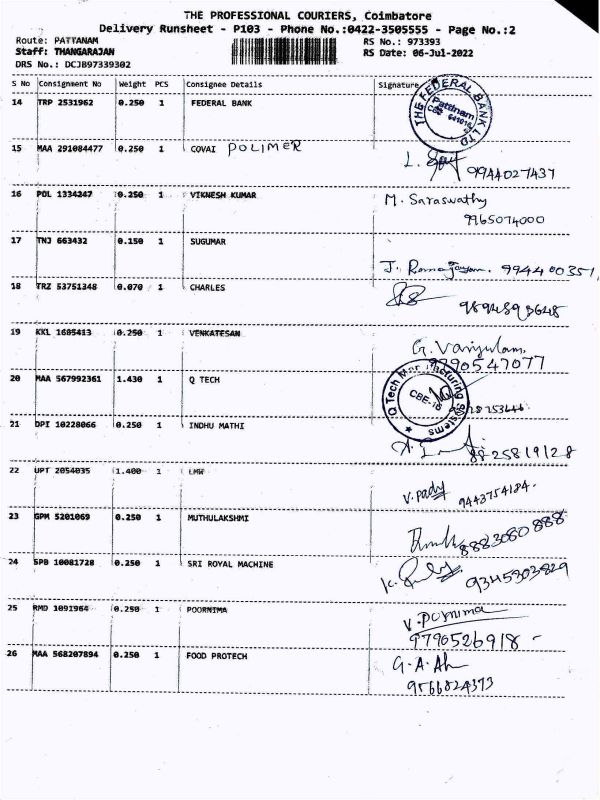 THE PROFESSIONAL COURIERS, Coimbatore
Delivery Runsheet - P103 - Phone No.:0422-3505555 - Page No.:2
Route: PATTANAM
RS No.: 973393
Staff: THANGARAJAN
RS Date: 06-Jul-2022
DRS No.: DCJB97339302
S No Consignment No Weight PCS Consignee Details Signature
14 TRP 2531962 0.250 1 FEDERAL BANK
THE FEDERAL BANK LTD
Pattnam
CBE 641016
15 MAA 291084477 0.250 1 COVAI POLIMER
L. 9944027437
16 POL 1334247 0.250 1 VIKNESH KUMAR
M. Saraswathy
9965074000
17 TNJ 663432 0.150 1 SUGUMAR
J. 994400351
18 TRZ 53751348 0.070 1 CHARLES
19 KKL 1685413 0.250 1 VENKATESAN
G.
9790547077
20 MAA 567992361 1.430 1 Q TECH
Q Tech Systems
CBE-16
21 DPI 10228066 0.250 1 INDHU MATHI
8825819128
22 UPT 2054035 1.400 1 LMW
V. pady 9443754184.
23 GPM 5201069 0.250 1 MUTHULAKSHMI
8883080888
24 SPB 10081728 0.250 1 SRI ROYAL MACHINE
K. 9345303829
25 RMD 1091964 0.250 1 POORNIMA
V. Pornima
9790526918 -
26 MAA 568207894 0.250 1 FOOD PROTECH
G.A.
9566824373